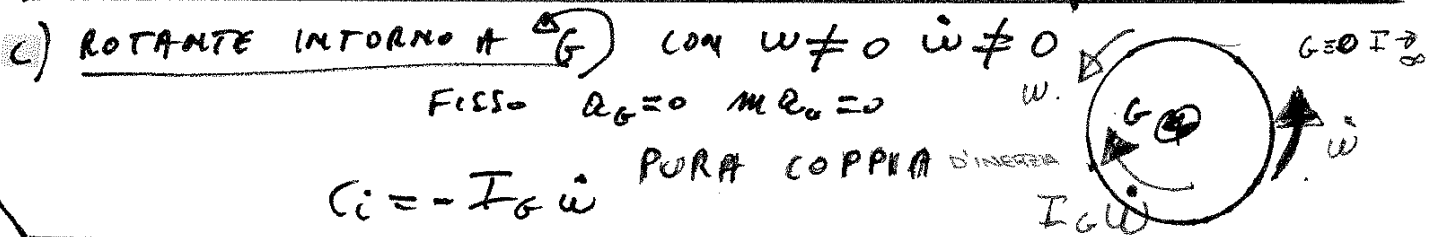 c) ROTANTE INTORNO A G) CON ω≠0 ω̇≠0
G≡0 I→∞
FISSO a_G=0 m a_G=0
ω.
G
ω̇
PURA COPPIA D'INERZIA
C_i = - I_G ω̇
I_G ω̇